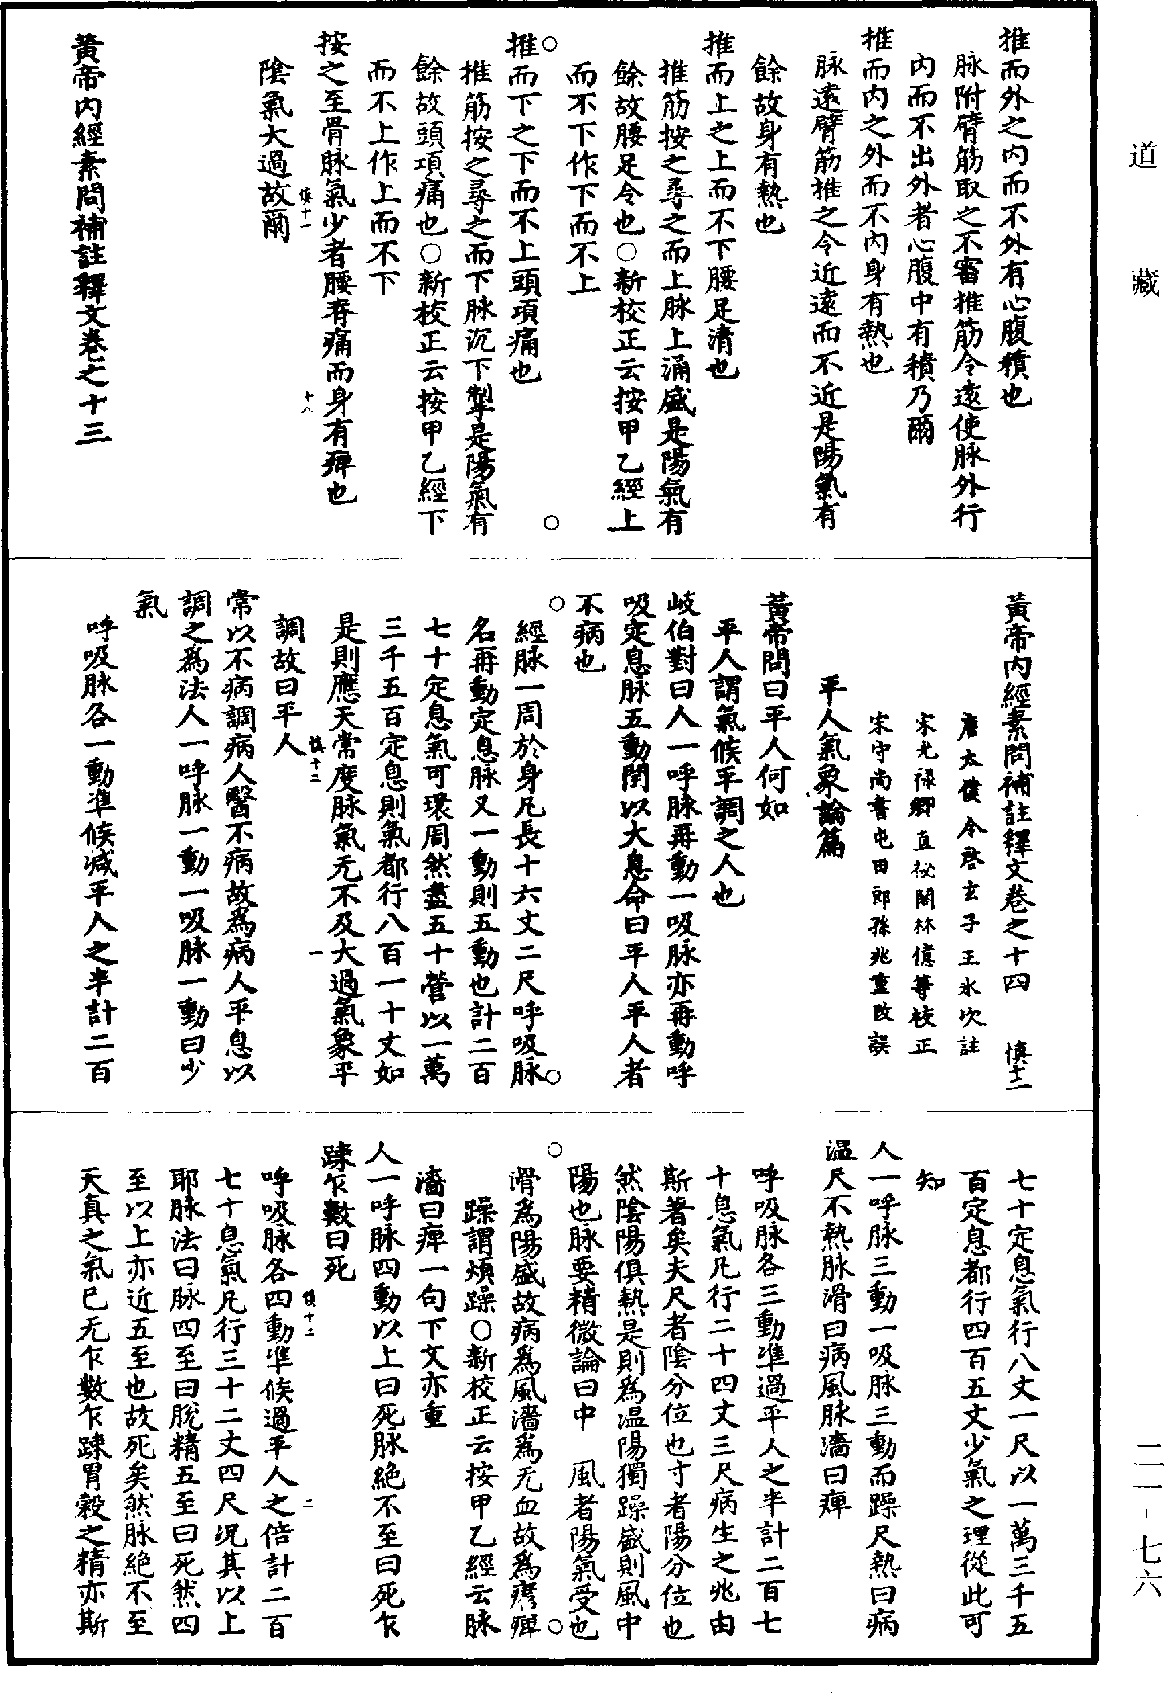 推而外之內而不外有心腹積也
脉附臂筋取之不審推筋令遠使脉外行
內而不出外者心腹中有積乃爾
推而內之外而不內身有熱也
脉遠臂筋推之令近遠而不近是陽氣有
餘故身有熱也
推而上之上而不下腰足清也
推筋按之尋之而上脉上涌盛是陽氣有
餘故腰足令也○新校正云按甲乙經上
而不下作下而不上
推而下之下而不上頭項痛也
推筋按之尋之而下脉沉下掣是陽氣有
餘故頭項痛也○新校正云按甲乙經下
而不上作上而不下
按之至骨脉氣少者腰脊痛而身有痺也
慎十一
十八
陰氣大過故爾
黃帝內經素問補註釋文卷之十三
黃帝內經素問補註釋文卷之十四 慎十二
唐太僕令啓玄子王冰次註
宋光祿卿直祕閣林億等校正
宋守尚書屯田郎孫兆重改誤
平人氣象論篇
黃帝問曰平人何如
平人謂氣候平調之人也
岐伯對曰人一呼脉再動一吸脉亦再動呼
吸定息脉五動閏以大息命曰平人平人者
不病也
經脉一周於身凡長十六丈二尺呼吸脉
名再動定息脉又一動則五動也計二百
七十定息氣可環周然盡五十營以一萬
三千五百定息則氣都行八百一十丈如
是則應天常度脉氣无不及大過氣象平
慎十二
一
調故曰平人
常以不病調病人醫不病故為病人平息以
調之為法人一呼脉一動一吸脉一動曰少
氣
呼吸脉各一動準候減平人之半計二百
七十定息氣行八丈一尺以一萬三千五
百定息都行四百五丈少氣之理從此可
知
人一呼脉三動一吸脉三動而躁尺熱曰病
溫尺不熱脉滑曰病風脉濇曰痺
呼吸脉各三動準過平人之半計二百七
十息氣凡行二十四丈三尺病生之兆由
斯著矣夫尺者陰分位也寸者陽分位也
然陰陽俱熱是則為溫陽獨躁盛則風中
陽也脉要精微論曰中 風者陽氣受也
滑為陽盛故病為風濇為无血故為痺
躁謂煩躁○新校正云按甲乙經云脉
濇曰痺一句下文亦重
人一呼脉四動以上曰死脉絕不至曰死乍
踈乍數曰死
呼吸脉各四動準候過平人之倍計二百
慎十二
二
七十息氣凡行三十二丈四尺况其以上
耶脉法曰脉四至曰脫精五至曰死然四
至以上亦近五至也故死矣然脉絕不至
天真之氣已无乍數乍踈胃穀之精亦斯
道藏
二一-七六